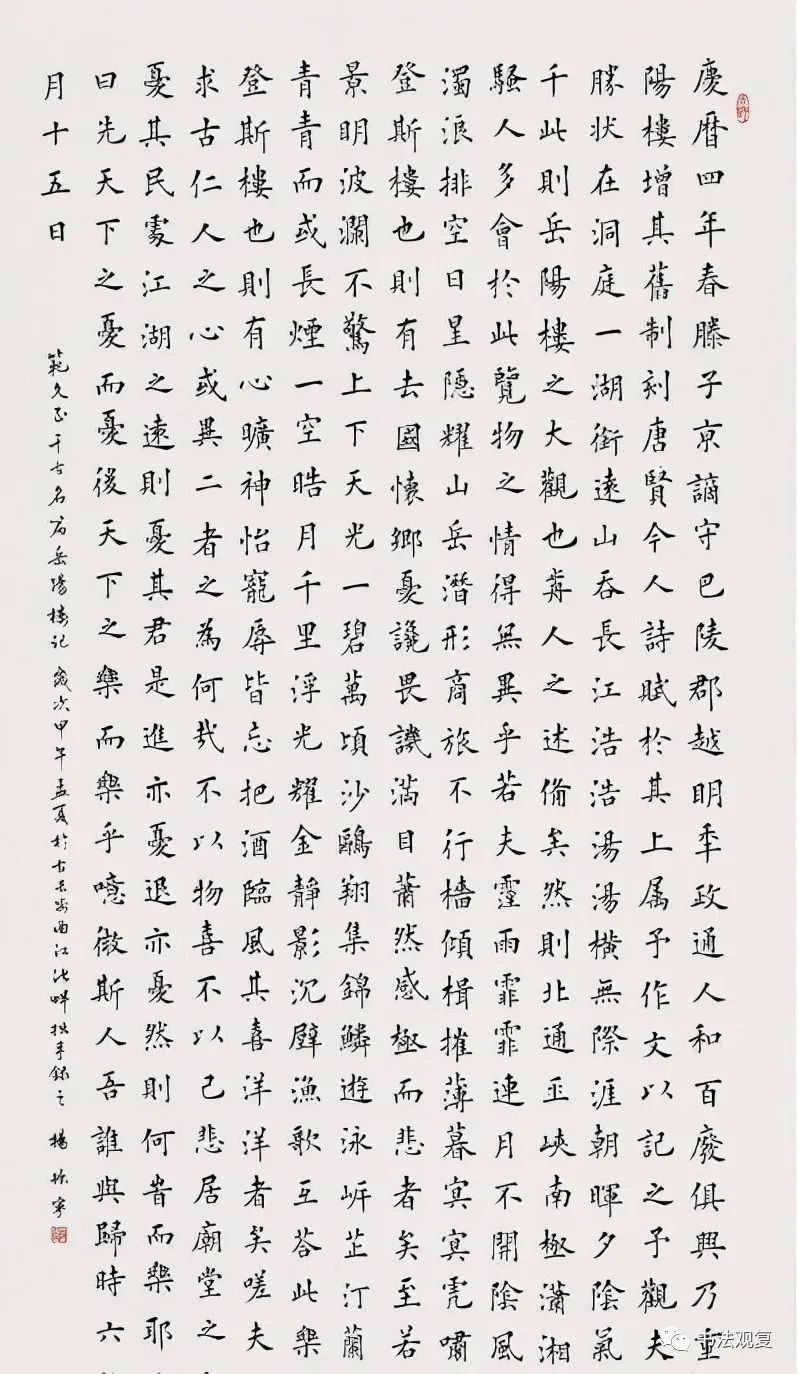 慶曆四年春滕子京謫守巴陵郡越明秊政通人和百廢俱興乃重
陽樓增其舊制刻唐賢今人詩賦於其上属予作文以記之予觀夫
勝狀在洞庭一湖銜遠山吞長江浩浩湯湯橫無際涯朝暉夕陰氣
千此則岳陽樓之大觀也歬人之述備矣然則北通巫峽南極瀟湘
騷人多會於此覽物之情得無異乎若夫霪雨霏霏連月不開陰風
濁浪排空日星隱耀山岳潛形商旅不行檣傾楫摧薄暮冥冥虎嘯
登斯樓也則有去國懷鄉憂讒畏譏滿目蕭然感極而悲者矣至若
景明波瀾不驚上下天光一碧萬頃沙鷗翔集錦鱗遊泳岸芷汀蘭
青青而或長煙一空皓月千里浮光耀金靜影沉璧漁歌互荅此樂
登斯樓也則有心曠神怡寵辱皆忘把酒臨風其喜洋洋者矣嗟夫
求古仁人之心或異二者之為何哉不以物喜不以己悲居廟堂之
憂其民處江湖之遠則憂其君是進亦憂退亦憂然則何旹而樂耶
曰先天下之憂而憂後天下之樂而樂乎噫微斯人吾誰與歸時六
月十五日
範文正千古名篇岳陽樓記 歲次甲午孟夏於古長安曲江池畔拙手錄之 楊
书法观复